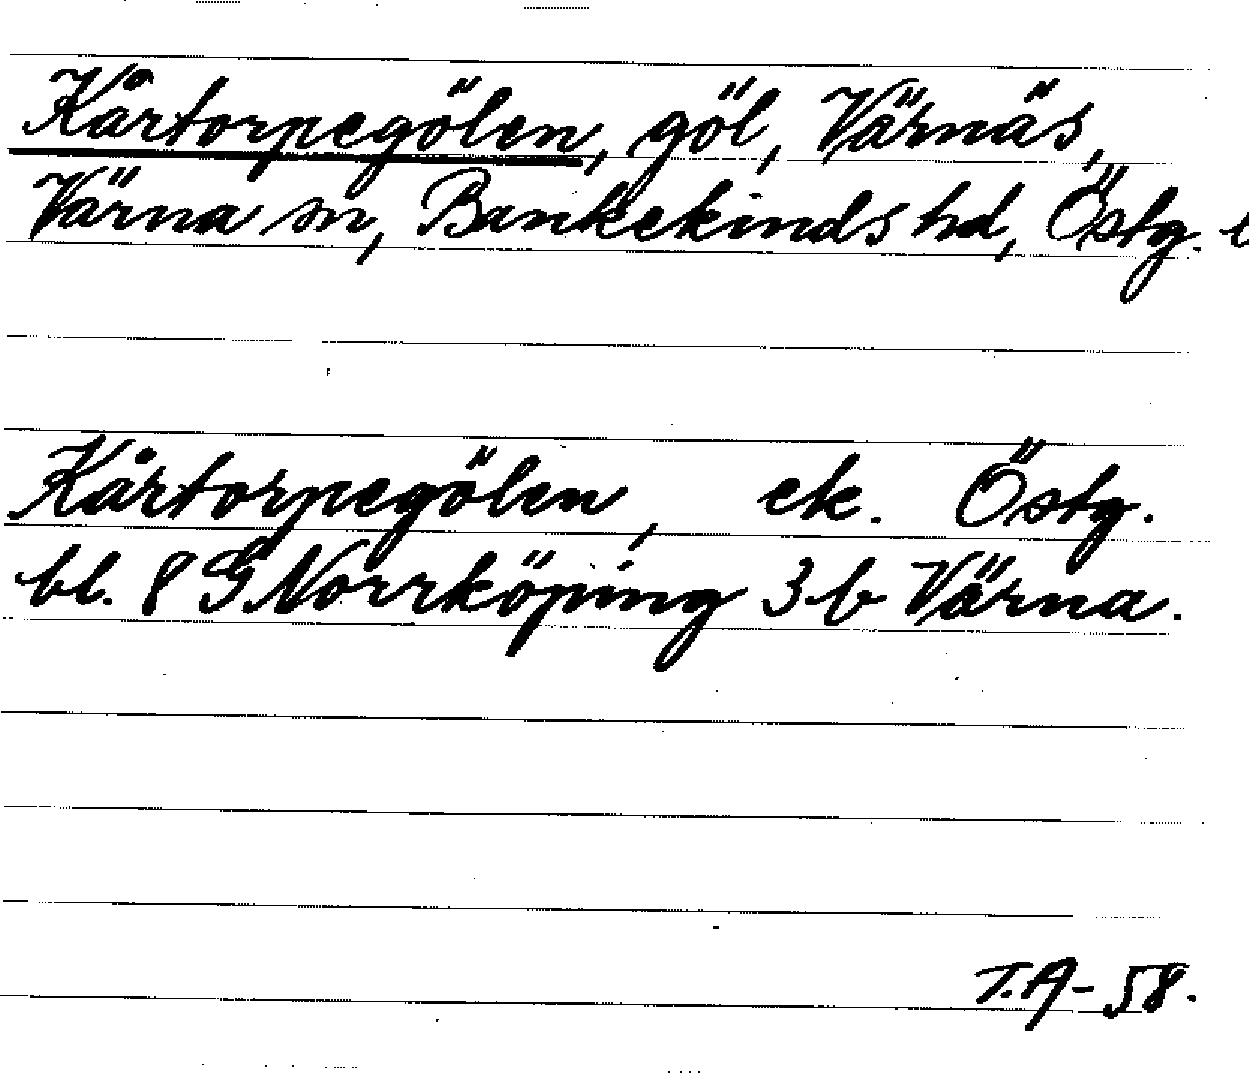 Kårtorpegölen, göl, Värnäs,
Värna sn, Bankekinds hd, Östg.
Kårtorpegölen, ek. Östg.
bl. 8 G Norrköping 3 b Värna.
T.A-58.